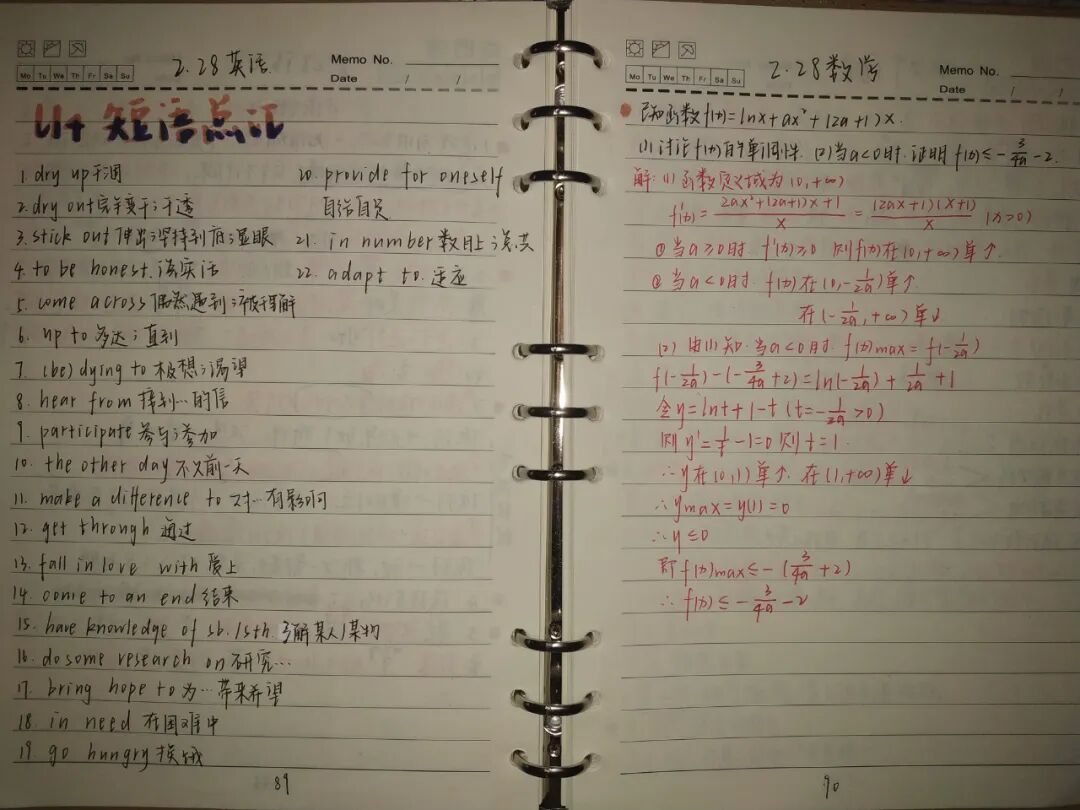 2.28英语.
Memo No.
Mo Tu We Th Fr Sa Su
Date / /
U4 短语总汇
1. dry up 干涸
2. dry out 完全变干;干透
3. stick out 伸出;坚持到底;显眼
4. to be honest. 说实话
5. come across 偶然遇到;被理解
6. up to 多达;直到
7. (be) dying to 极想;渴望
8. hear from 接到…的信
9. participate 参与;参加
10. the other day 不久前一天
11. make a difference to 对…有影响
12. get through 通过
13. fall in love with 爱上
14. come to an end 结束
15. have knowledge of sb./sth. 了解某人/某物
16. do some research on 研究…
17. bring hope to 为…带来希望
18. in need 在困难中
19. go hungry 挨饿
20. provide for oneself
自给自足
21. in number 数目上;总共
22. adapt to. 适应
89
2.28数学
Memo No.
Mo Tu We Th Fr Sa Su
Date / /
已知函数f(x)=lnx+ax²+(2a+1)x.
(1)讨论f(x)的单调性. (2)当a<0时.证明f(x)≤-3/4a-2.
解:(1)函数定义域为(0,+∞)
f'(x)=2ax²+(2a+1)x+1/x=(2ax+1)(x+1)/x (x>0)
①当a≥0时. f'(x)≥0 则f(x)在(0,+∞)单↑.
②当a<0时. f(x)在(0,-1/2a)单↑.
在(-1/2a,+∞)单↓
(2)由(1)知.当a<0时.f(x)max=f(-1/2a)
f(-1/2a)-(-3/4a+2)=ln(-1/2a)+1/2a+1
令y=lnt+1-t(t=-1/2a>0)
则y'=1/t-1=0则t=1.
∴y在(0,1)单↑.在(1,+∞)单↓
∴ymax=y(1)=0
∴y≤0
即f(x)max≤-(3/4a+2)
∴f(x)≤-3/4a-2
90